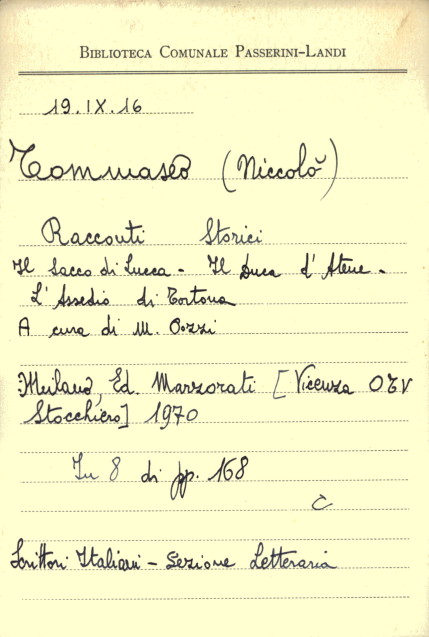 BIBLIOTECA COMUNALE PASSERINI-LANDI
19.IX.16
Tommaseo (Niccolò)
Racconti Storici
Il Sacco di Lucca - Il Duca d'Atene -
L'Assedio di Tortona
A cura di M. Pozzi
Milano, Ed. Marzorati [Vicenza OTV
Stocchiero] 1970
In 8 di pp. 168
C
Scrittori Italiani - Sezione Letteraria